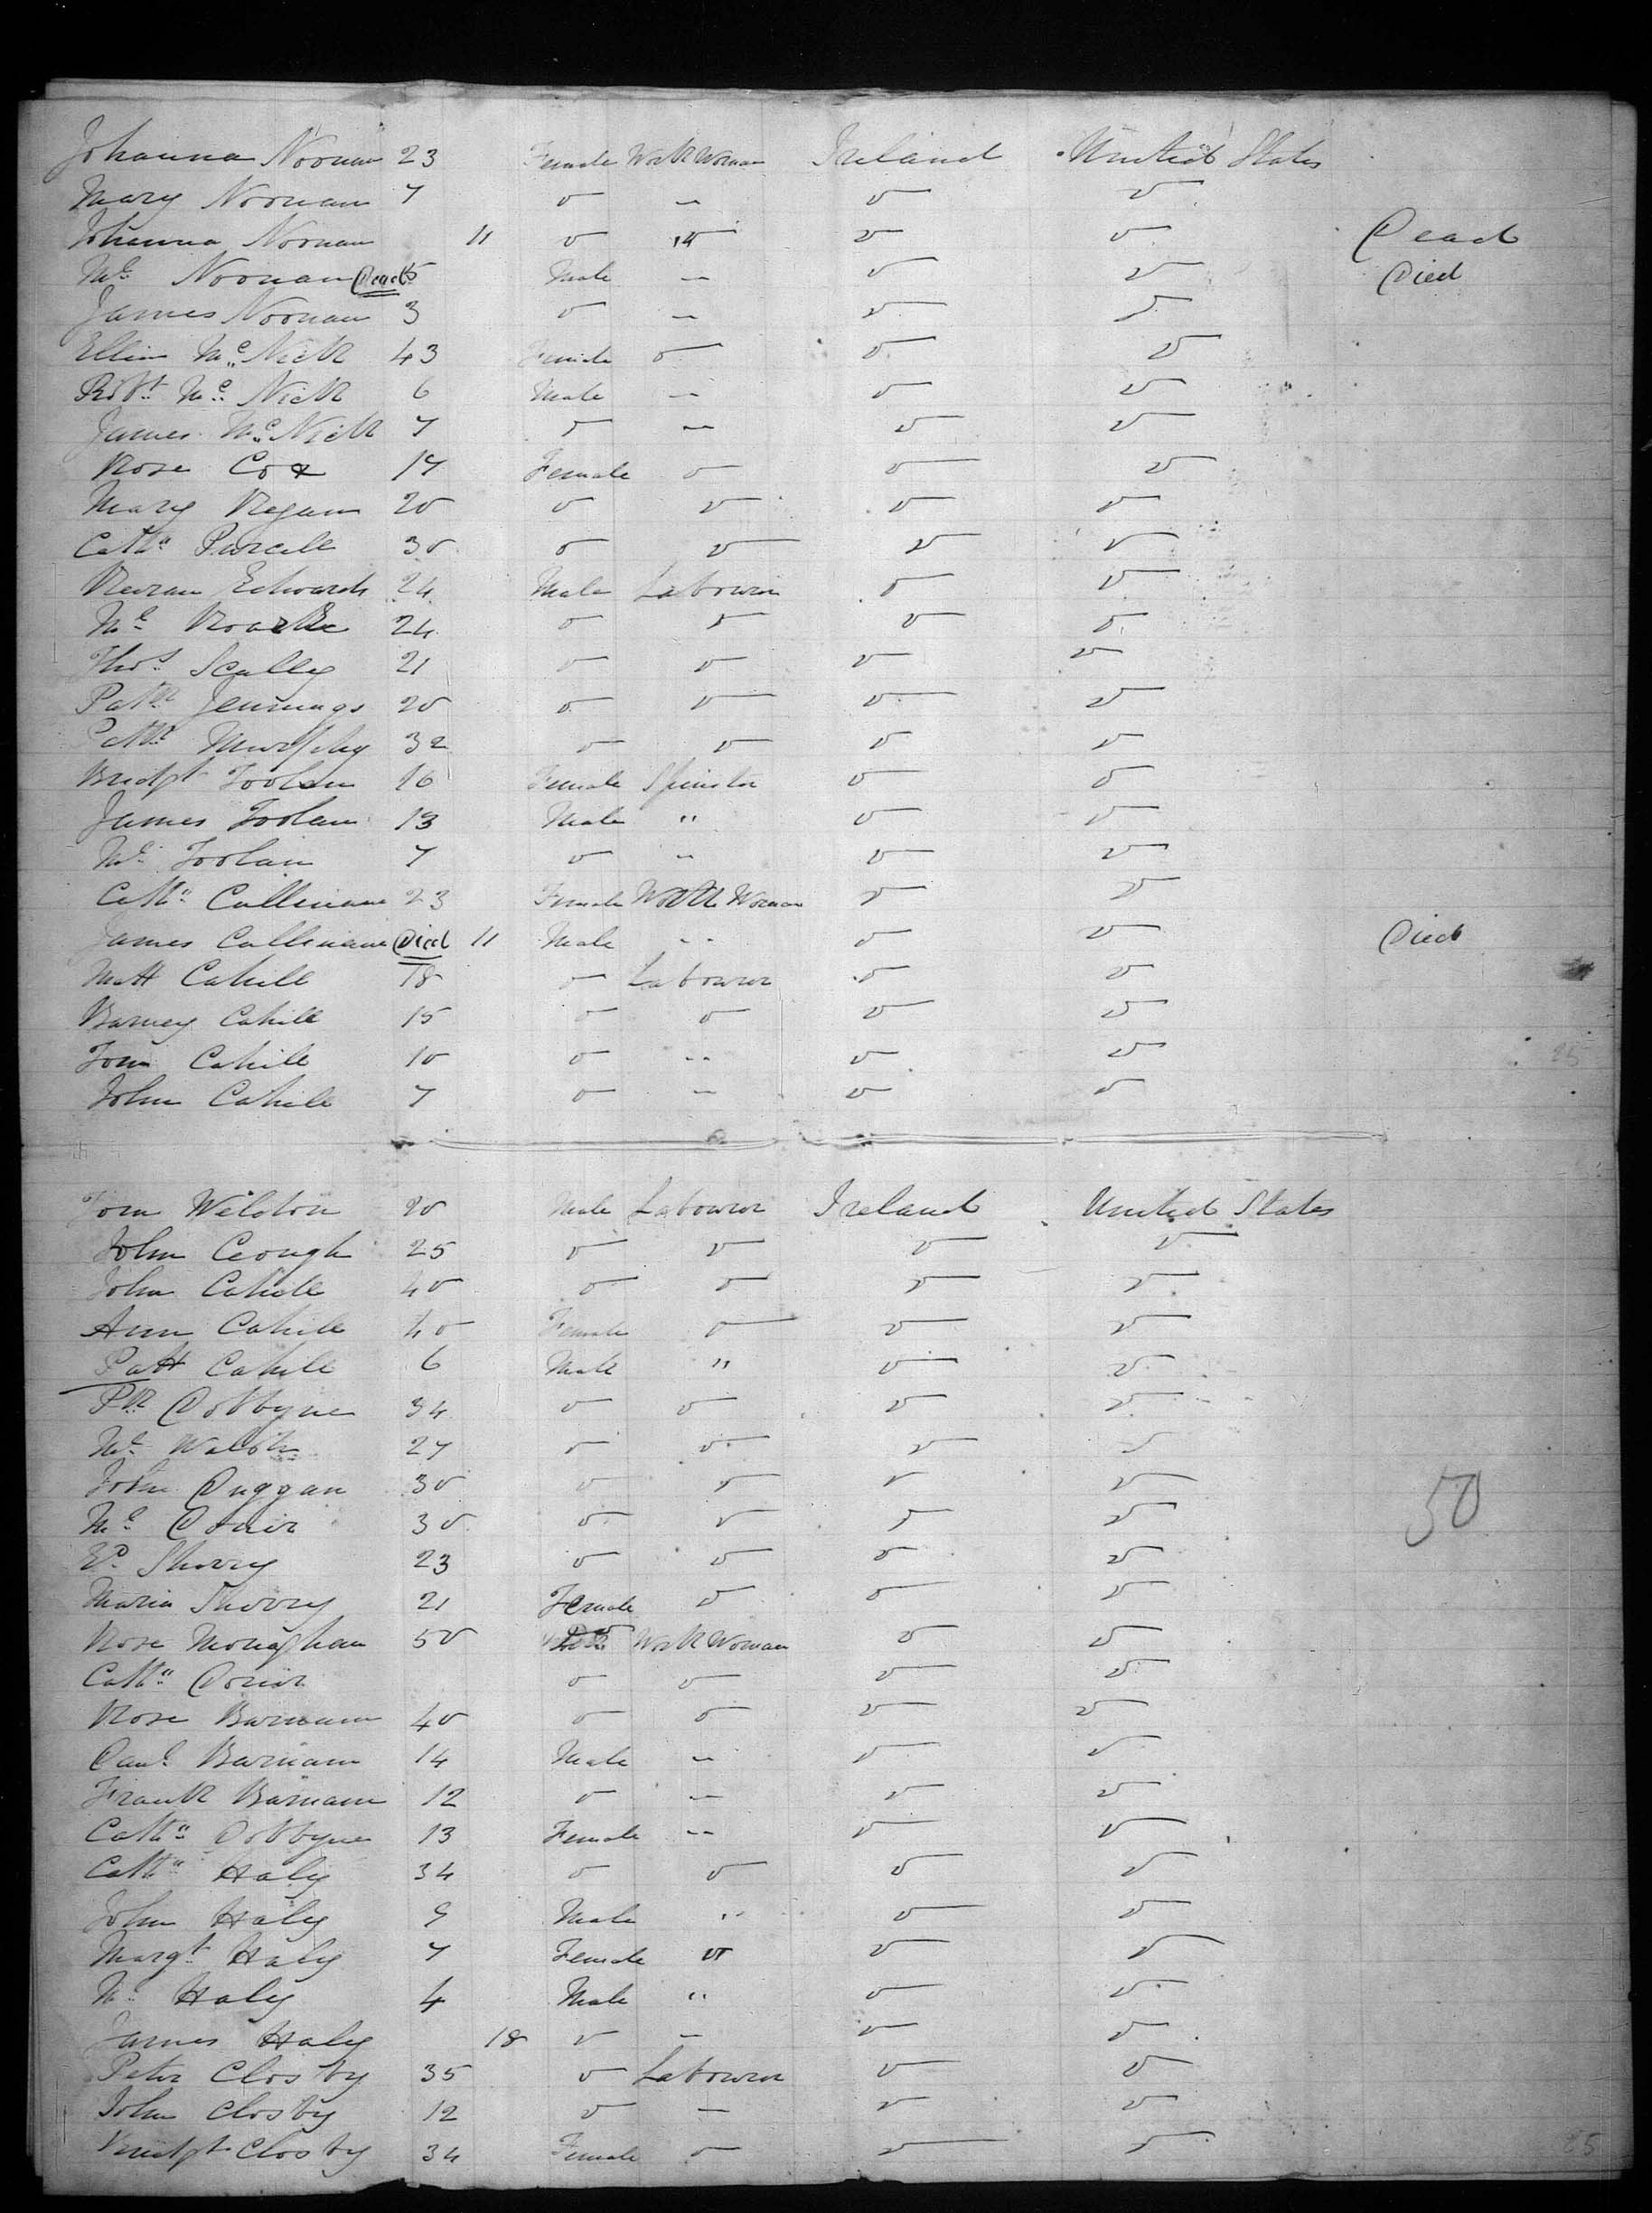 Johanna Noonan 23 Female Work Woman Ireland United States
Mary Noonan 7 " " " "
Johanna Noonan 11 " " " " Dead
Ml Noonan Dead 5 Male " " " Died
James Noonan 3 " " " "
Ellin Mc Nick 43 Female " " "
Robt Mc Nick 6 Male " " "
James Mc Nick 7 " " " "
Rose Cox 17 Female " " "
Mary Regan 20 " " " "
Cathn Purcell 30 " " " "
Edwards 24 Male Labourer " "
Ml Roarke 24 " " " "
Thos Scally 21 " " " "
Patk Jennings 20 " " " "
Patk Murphy 32 " " " "
Bridgt Toolan 16 Female Spinster " "
James Toolan 13 Male " " "
Ml Toolan 7 " " " "
Cathn Cullinane 23 Female Work Woman " "
James Cullinane Died 11 Male " " " Died
Matt Cahill 18 " Labourer " "
Barney Cahill 15 " " " "
Tom Cahill 10 " " " "
John Cahill 7 " " " "
25
Tom Weldon 20 Male Labourer Ireland United States
John Ceough 25 " " " "
John Cahill 40 " " " "
Ann Cahill 40 Female " " "
Patt Cahill 6 Male " " "
Pk Dobbyne 34 " " " "
Ml Walsh 27 " " " "
John Duggan 30 " " " "
50
Ml 30 " " " "
Sherry 23 " " " "
Maria Sherry 21 Female " " "
Rose Monaghan 50 Do Work Woman " "
Cathn " " " "
Rose Barnam 40 " " " "
Danl Barnam 14 Male " " "
Frank Barnam 12 " " " "
Cathn Dobbyne 13 Female " " "
Cathn Haly 34 " " " "
John Haly 9 Male " " "
Margt Haly 7 Female " " "
Ml Haly 4 Male " " "
James Haly 18 " " " "
Peter Closby 35 " Labourer " "
John Closby 12 " " " "
Bridgt Closby 34 Female " " "